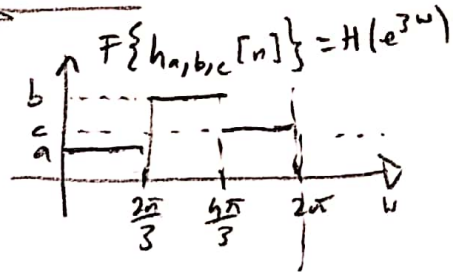 F{h_{a,b,c}[n]} = H(e^{jω})
b
c
a
...
2π/3 4π/3 2π ω